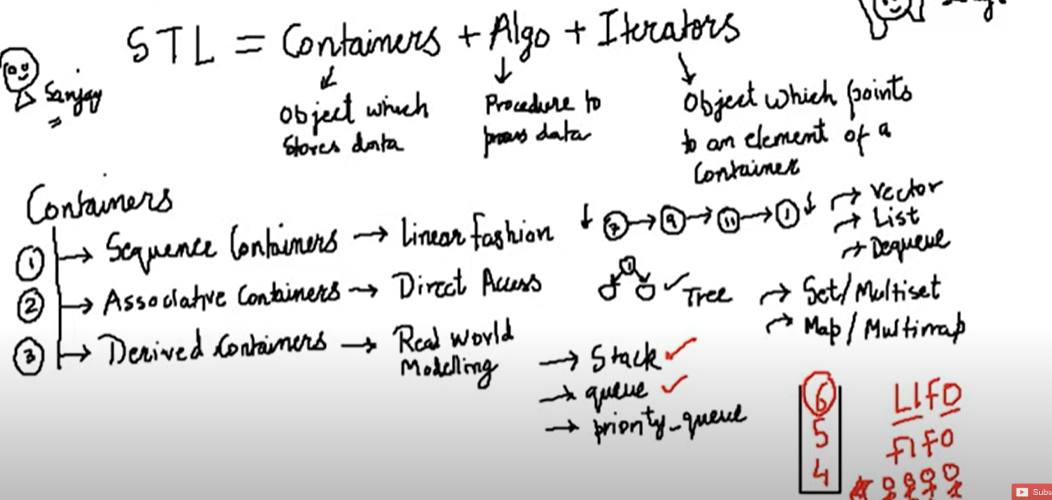 STL = Containers + Algo + Iterators
Sanjay
Object which
Stores data
Procedure to
process data
Object which points
to an element of a
Container
Containers
① → Sequence Containers → Linear fashion
7 → 9 → 11 → 1
→ Vector
→ List
→ Dequeue
② → Associative Containers → Direct Access
1
Tree
→ Set/Multiset
→ Map/Multimap
③ → Derived Containers → Real World
Modelling
→ Stack ✓
→ queue ✓
→ priority_queue
6
5
4
LIFO
FIFO
Subs